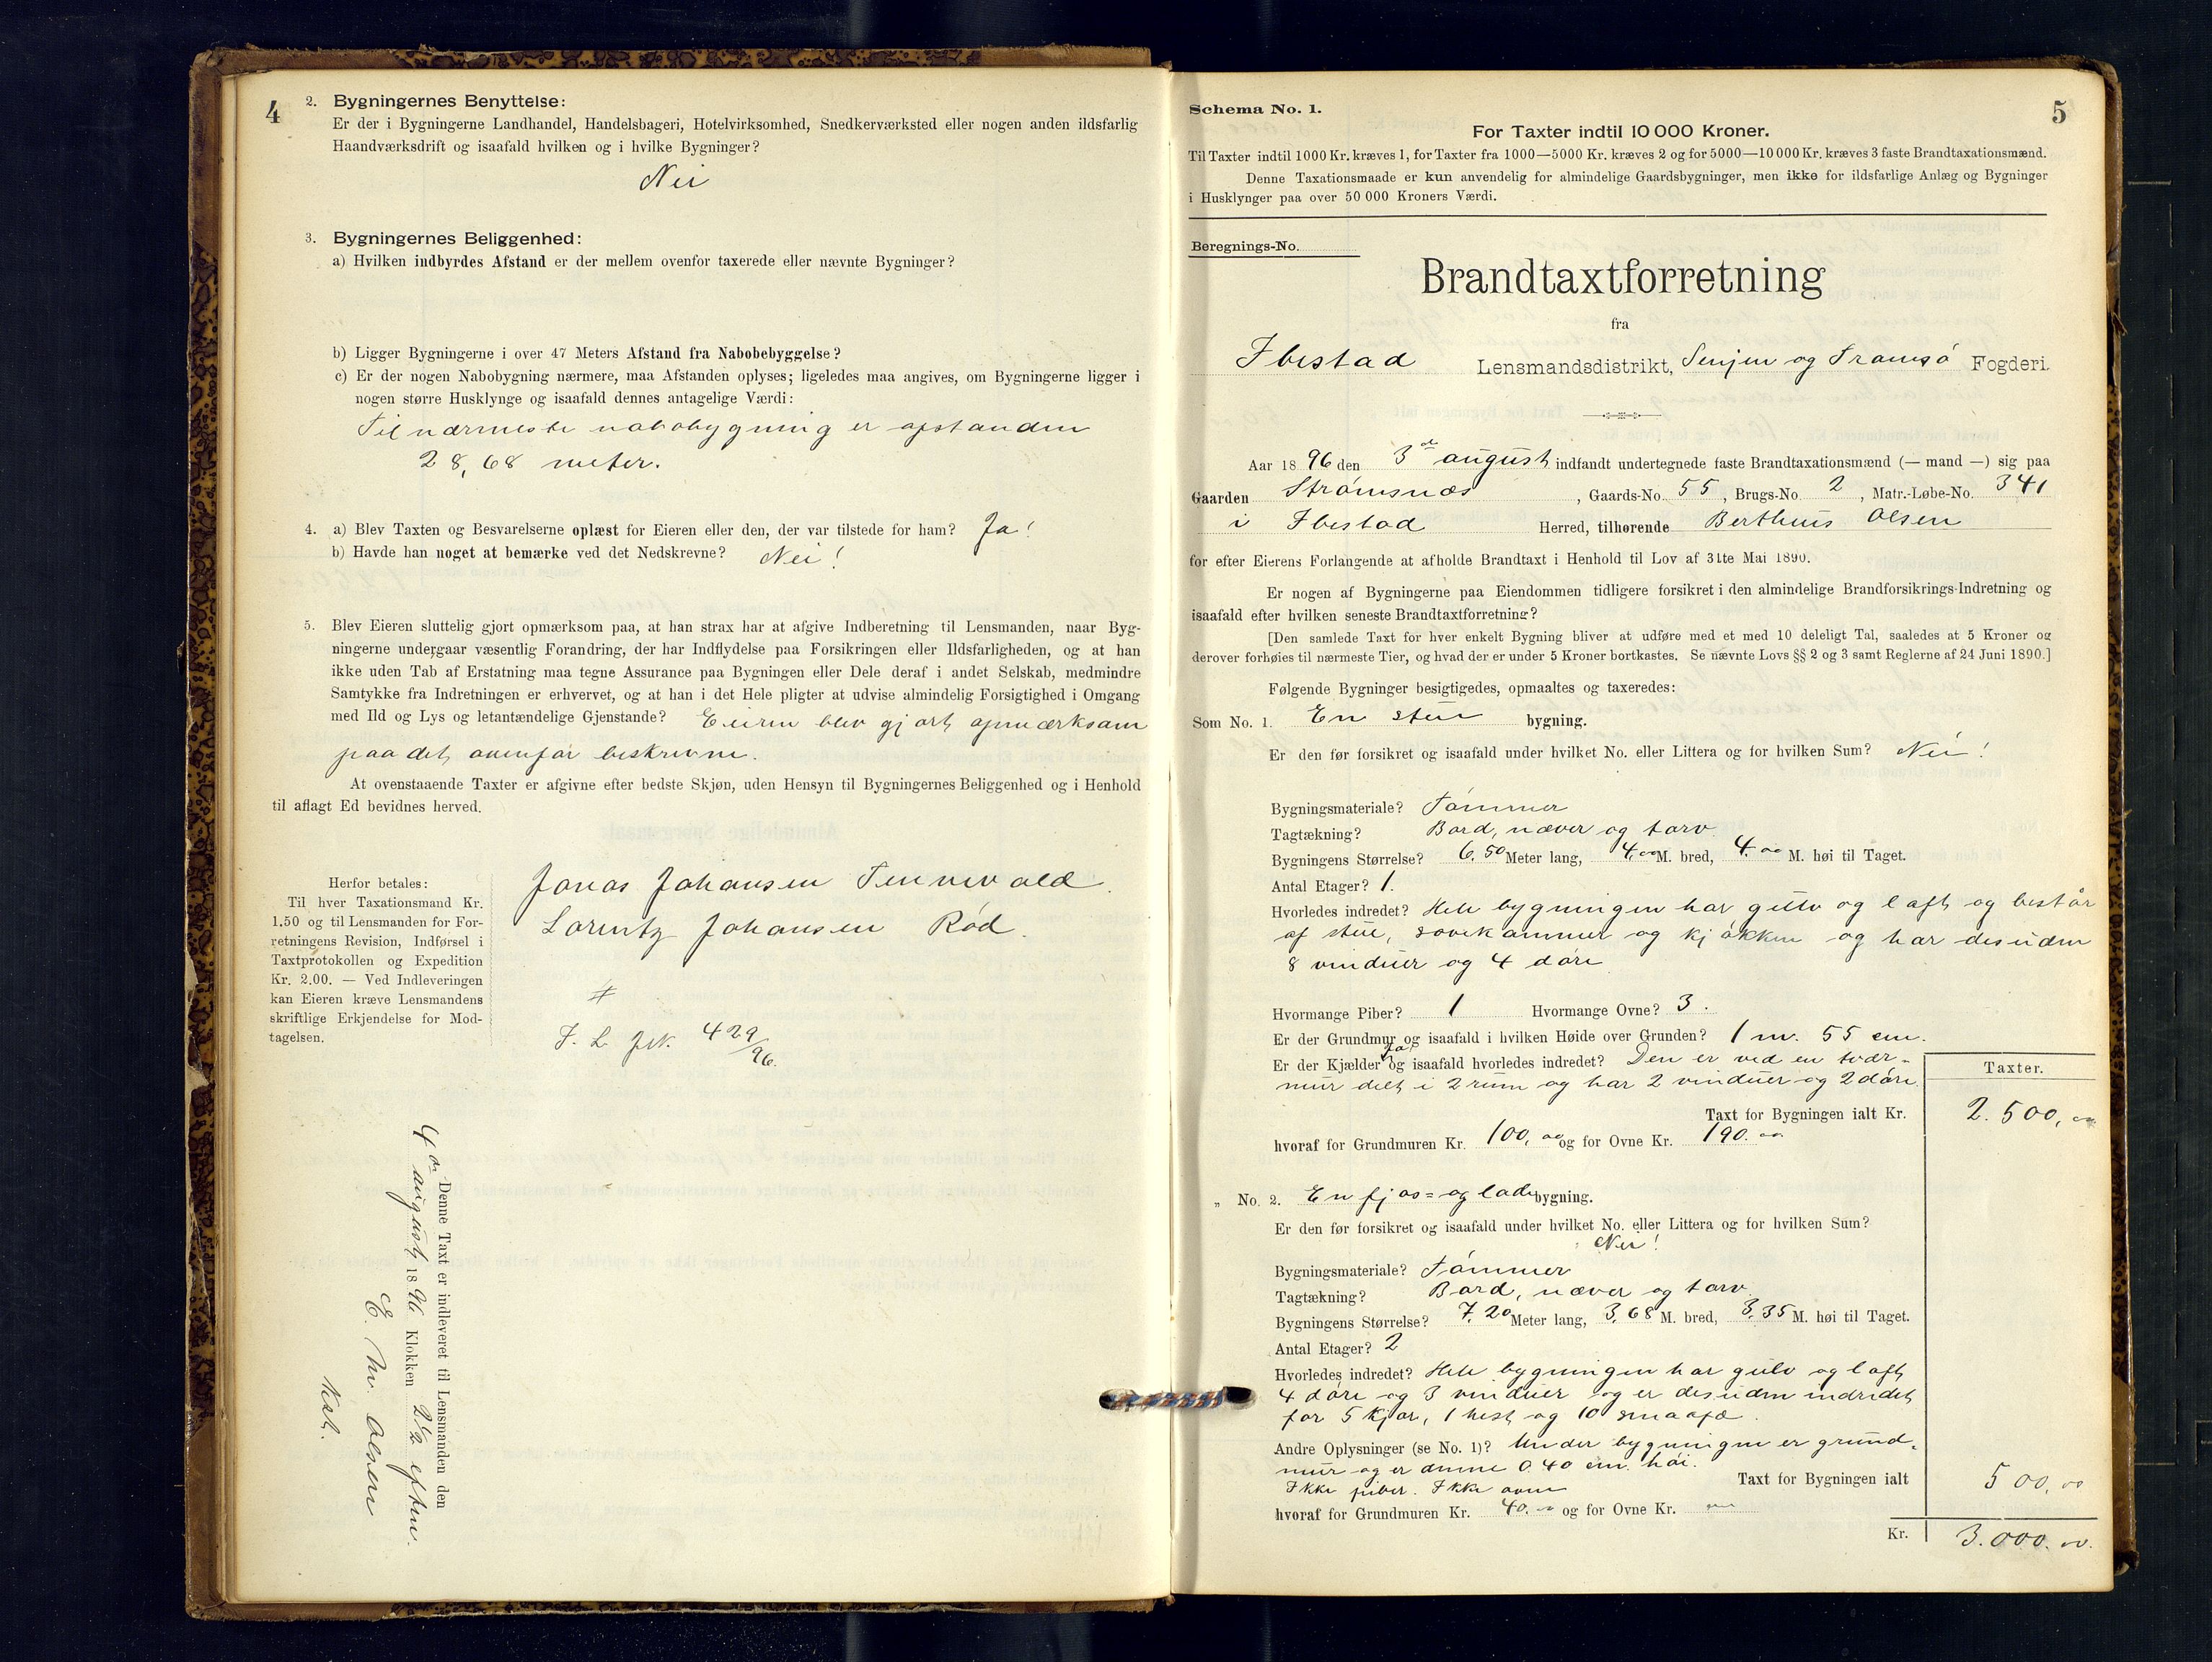 4
2. Bygningernes Benyttelse:
Er der i Bygningerne Landhandel, Handelsbageri, Hotelvirksomhed, Snedkerværksted eller nogen anden ildsfarlig
Haandværksdrift og isaafald hvilken og i hvilke Bygninger?
Nei
3. Bygningernes Beliggenhed:
a) Hvilken indbyrdes Afstand er der mellem ovenfor taxerede eller nævnte Bygninger?
b) Ligger Bygningerne i over 47 Meters Afstand fra Nabobebyggelse?
c) Er der nogen Nabobygning nærmere, maa Afstanden oplyses; ligeledes maa angives, om Bygningerne ligger i
nogen større Husklynge og isaafald dennes antagelige Værdi:
Til nærmeste nabobygning er afstanden
28,68 meter.
4. a) Blev Taxten og Besvarelserne oplæst for Eieren eller den, der var tilstede for ham? Ja!
b) Havde han noget at bemærke ved det Nedskrevne? Nei!
5. Blev Eieren sluttelig gjort opmærksom paa, at han strax har at afgive Indberetning til Lensmanden, naar Byg-
ningerne undergaar væsentlig Forandring, der har Indflydelse paa Forsikringen eller Ildsfarligheden, og at han
ikke uden Tab af Erstatning maa tegne Assurance paa Bygningen eller Dele deraf i andet Selskab, medmindre
Samtykke fra Indretningen er erhvervet, og at han i det Hele pligter at udvise almindelig Forsigtighed i Omgang
med Ild og Lys og letantændelige Gjenstande? Eieren blev gjort opmærksom
paa det ovenfor beskrevne.
At ovenstaaende Taxter er afgivne efter bedste Skjøn, uden Hensyn til Bygningernes Beliggenhed og i Henhold
til aflagt Ed bevidnes herved.
Herfor betales:
Til hver Taxationsmand Kr.
1.50 og til Lensmanden for For-
retningens Revision, Indførsel i
Taxtprotokollen og Expedition
Kr. 2.00. — Ved Indleveringen
kan Eieren kræve Lensmandens
skriftlige Erkjendelse for Mod-
tagelsen.
Jonas Johansen Tennevold.
Lorentz Johansen Rød.
#
429/96.
Denne Taxt er indleveret til Lensmanden den
4de august 1896 Klokken 2 1/2 efterm.
E. M. Olsen
Kst.
5
Schema No. 1.
For Taxter indtil 10 000 Kroner.
Til Taxter indtil 1000 Kr. kræves 1, for Taxter fra 1000—5000 Kr. kræves 2 og for 5000—10 000 Kr. kræves 3 faste Brandtaxationsmænd.
Denne Taxationsmaade er kun anvendelig for almindelige Gaardsbygninger, men ikke for ildsfarlige Anlæg og Bygninger
i Husklynger paa over 50 000 Kroners Værdi.
Beregnings-No.
Brandtaxtforretning
fra
Ibestad Lensmandsdistrikt, Senjen og Tromsø Fogderi.
Aar 1896 den 3de august indfandt undertegnede faste Brandtaxationsmænd (— mand —) sig paa
Gaarden Strømsnæs, Gaards-No. 55, Brugs-No. 2, Matr.-Løbe-No. 341
i Ibestad Herred, tilhørende Bertheus Olsen
for efter Eierens Forlangende at afholde Brandtaxt i Henhold til Lov af 31te Mai 1890.
Er nogen af Bygningerne paa Eiendommen tidligere forsikret i den almindelige Brandforsikrings-Indretning og
isaafald efter hvilken seneste Brandtaxtforretning?
[Den samlede Taxt for hver enkelt Bygning bliver at udføre med et med 10 deleligt Tal, saaledes at 5 Kroner og
derover forhøies til nærmeste Tier, og hvad der er under 5 Kroner bortkastes. Se nævnte Lovs §§ 2 og 3 samt Reglerne af 24 Juni 1890.]
Følgende Bygninger besigtigedes, opmaaltes og taxeredes:
Som No. 1. En stue bygning.
Er den før forsikret og isaafald under hvilket No. eller Littera og for hvilken Sum? Nei!
Bygningsmateriale? Tømmer
Tagtækning? Bord, næver og torv.
Bygningens Størrelse? 6,50 Meter lang, 4,00 M. bred, 4,00 M. høi til Taget.
Antal Etager? 1.
Hvorledes indredet? Hele bygningen har gulv og loft og består
af stue, sovekammer og kjøkken og har desuden
8 vinduer og 4 døre
Hvormange Piber? 1 Hvormange Ovne? 3.
Er der Grundmur og isaafald i hvilken Høide over Grunden? 1 m. 55 cm.
Er der Kjælder Ja! og isaafald hvorledes indredet? Den er ved en tvær-
mur delt i 2 rum og har 2 vinduer og 2 døre.
Taxter.
Taxt for Bygningen ialt Kr. 2.500,00
hvoraf for Grundmuren Kr. 100,00 og for Ovne Kr. 190.00
" No. 2. En fjøs= og lade bygning.
Er den før forsikret og isaafald under hvilket No. eller Littera og for hvilken Sum?
Nei!
Bygningsmateriale? Tømmer
Tagtækning? Bord, næver og torv.
Bygningens Størrelse? 7,20 Meter lang, 3,68 M. bred, 3,35 M. høi til Taget.
Antal Etager? 2
Hvorledes indredet? Hele bygningen har gulv og loft,
4 døre og 3 vinduer og er desuden indredet
for 5 kjør, 1 hest og 10 smaafæ.
Andre Oplysninger (se No. 1)? Under bygningen er grund-
mur og er denne 0.40 cm. høi.
Ikke piber. Ikke ovne
Taxt for Bygningen ialt 500,00
hvoraf for Grundmuren Kr. 40.00 og for Ovne Kr.
Kr. 3.000.00.